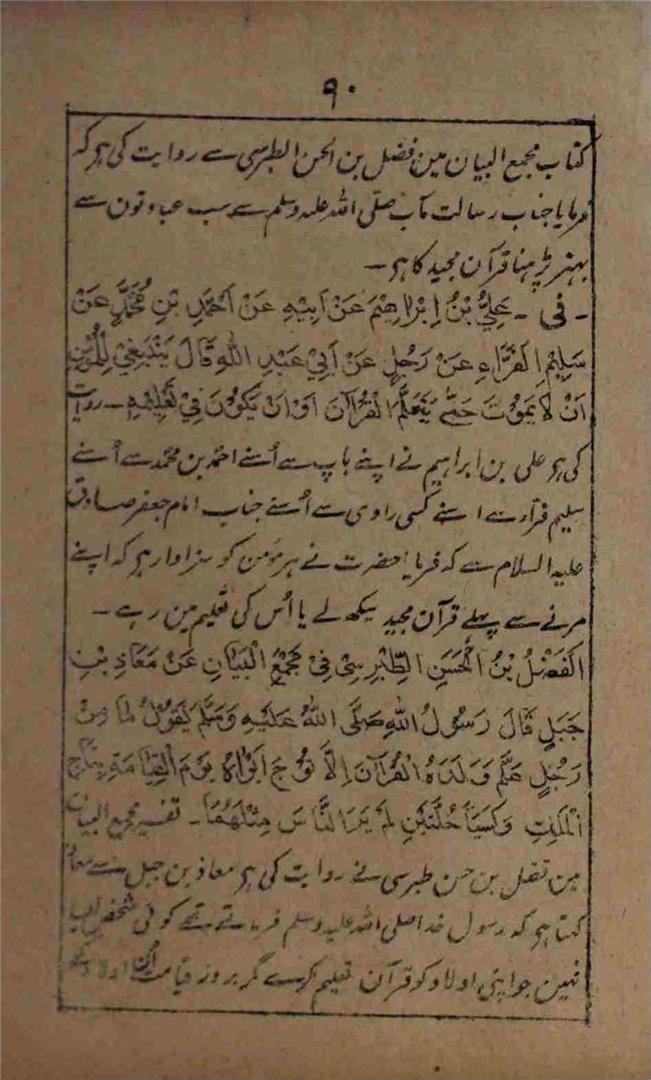 ۹۰
کتاب مجمع البیان مین فضل بن الحسن الطبرسی سے روایت کی ہر کہ
فرمایا جناب رسالت مآب صلّی اللہ علیہ وسلم نے سب عبادتون سے
بہتر پڑہنا قرآن مجید کا ہر ۔
۔ فی ۔ عَلِيُّ بْنُ اِبْرَاهِيْمَ عَنْ اَبِيْهِ عَنْ اَحْمَدَ بْنِ مُحَمَّدٍ عَنْ
سَلِيْمِ الْفَرَّاءِ عَنْ رَجُلٍ عَنْ اَبِيْ عَبْدِ اللهِ قَالَ يَنْبَغِيْ لِلْمُؤْمِنِ
اَنْ لَا يَمُوْتَ حَتّٰى يَتَعَلَّمَ الْقُرْآنَ اَوْ اَنْ يَكُوْنَ فِيْ تَعْلِيْمِهِ ۔ روایت
کی ہر علی بن ابراہیم نے اپنے باپ سے اُسنے احمد بن محمد سے اُسنے
سلیم فرّاء سے اسنے کسی راوی سے اُسنے جناب امام جعفر صادق
علیہ السلام سے کہ فرمایا حضرت نے ہر مؤمن کو سزاوار ہر کہ اپنے
مرنے سے پہلے قرآن مجید سیکھ لے یا اُس کی تعلیم مین رہے ۔
اَلْفَضْلُ بْنُ الْحَسَنِ الطِّبْرِسِيْ فِيْ مَجْمَعِ الْبَيَانِ عَنْ مَعَاذِ بْنِ
جَبَلٍ قَالَ رَسُوْلُ اللهِ صَلَّى اللهُ عَلَيْهِ وَسَلَّمَ يَقُوْلُ مَا مِنْ
رَجُلٍ عَلَّمَ وَلَدَهُ الْقُرْآنَ اِلَّا تُوِّجَ اَبَوَاهُ يَوْمَ الْقِيَامَةِ بِتَاجِ
الْمَلِكِ وَكُسِيَا حُلَّتَيْنِ لَمْ يَرَ النَّاسُ مِثْلَهُمَا ۔ تفسیر مجمع البیان
مین فضل بن حسن طبرسی نے روایت کی ہر معاذ بن جبل سے معاذ
کہتا ہر کہ رسول خدا صلی اللہ علیہ وسلم فرماتے تھے کوئی شخص ایسا
نہین جو اپنی اولاد کو قرآن تعلیم کرے مگر بروز قیامت اُس اولاد کے